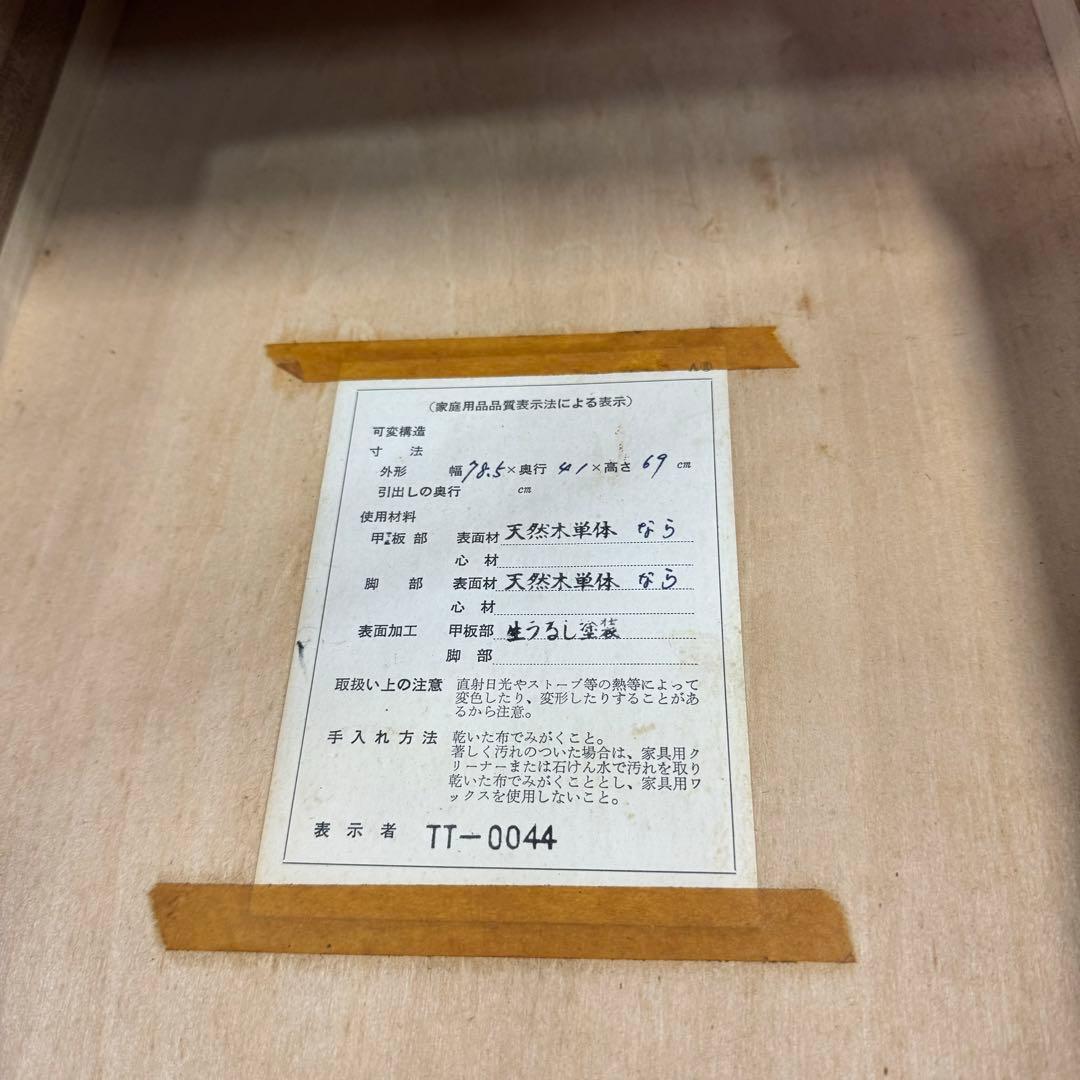 (家庭用品品質表示法による表示)
可変構造
寸法
外形 幅78.5×奥行 41×高さ 69 cm
引出しの奥行 cm
使用材料
甲板部 表面材 天然木単体 なら
心材
脚部 表面材 天然木単体 なら
心材
表面加工 甲板部 生うるし塗装
脚部
取扱い上の注意 直射日光やストーブ等の熱等によって
変色したり、変形したりすることがあ
るから注意。
手入れ方法 乾いた布でみがくこと。
著しく汚れのついた場合は、家具用ク
リーナーまたは石けん水で汚れを取り
乾いた布でみがくこととし、家具用ワ
ックスを使用しないこと。
表示者 TT-0044